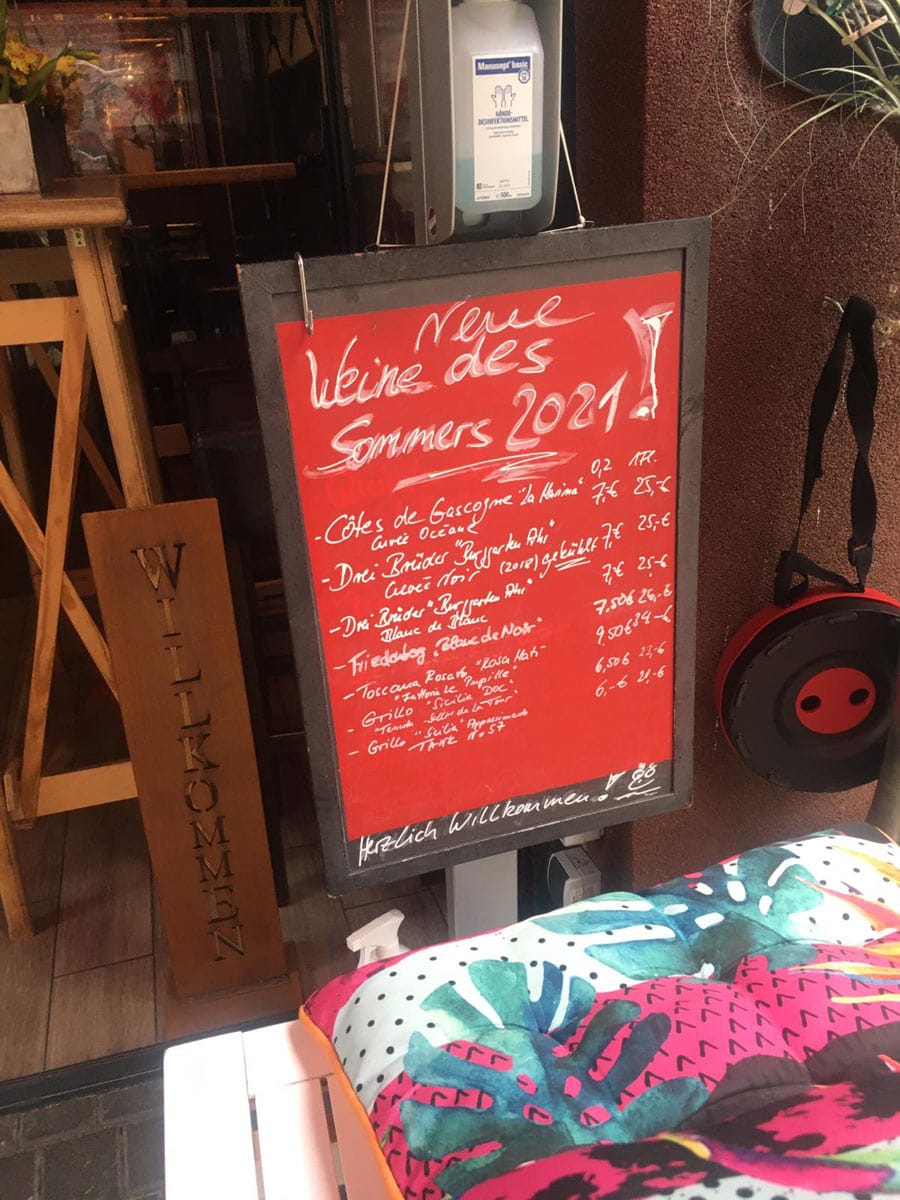 Manusept® basic
HÄNDE-
DESINFEKTIONSMITTEL
500
Neue
Weine des
Sommers 2021!
0,2 1 Fl.
- Côtes de Gascogne "La Marina" 7,-€ 25,-€
Cuvée Océane
- Drei Brüder "Burggarten Ahr" 7,-€ 25,-€
Cuvée Noir (2018) gekühlt
- Drei Brüder "Burggarten Ahr" 7,-€ 25,-€
Blanc de Blanc
- "Blanc de Noir" 7,50€ 26,-€
- Toscana Rosato "Rosa Mati" 9,50€ 34,-€
"Fattoria Le Pupille"
- Grillo "Sicilia DOC" 6,50€ 23,-€
"Tenuta
- Grillo "Sicilia Appassimento 6,-€ 21,-€
TANK No 57
Herzlich Willkommen!
WILLKOMMEN